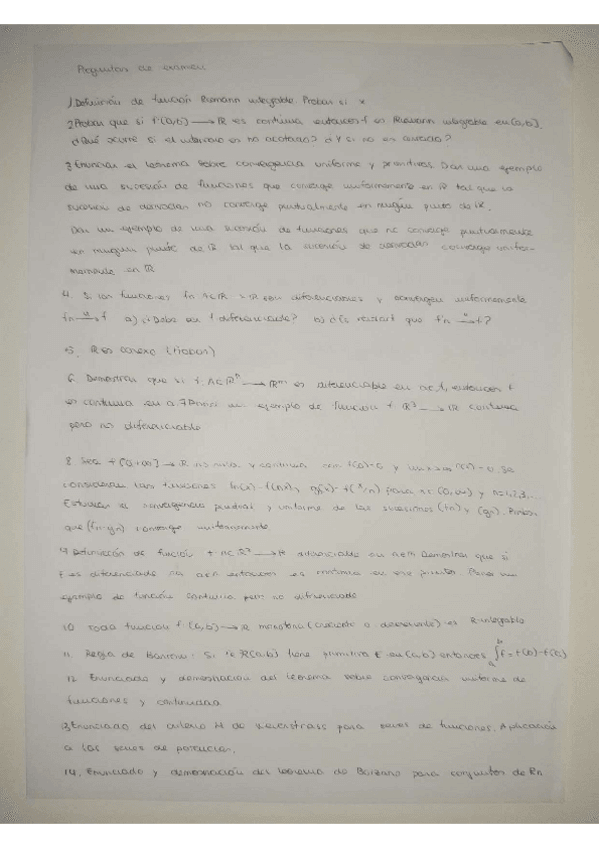 Preguntas de examen
1. Definición de función Riemann integrable. Probar si x
2 Probar que si f: [a,b] → R es continua entonces f es Riemann integrable en [a,b].
¿Qué ocurre si el intervalo es no acotado? ¿Y si no es cerrado?
3. Enunciar el teorema sobre convergencia uniforme y primitivas. Dar un ejemplo
de una sucesión de funciones que converge uniformemente en R tal que la
sucesión de derivadas no converge puntualmente en ningún punto de R.
Dar un ejemplo de una sucesión de funciones que no converge puntualmente
en ningún punto de R tal que la sucesión de derivadas converge unifor-
memente en R
4. Si las funciones fn son diferenciables y convergen uniformemente
fn → f a) ¿Debe ser f diferenciable? b) que f'n → f'?
5. R es conexo
6. Demostrar que si f: A⊂Rⁿ → Rᵐ es diferenciable en a∈A, entonces f
es continua en a. un ejemplo de función f: R² → R continua
pero no diferenciable
8. Sea f: [0,+∞) → R continua con f(0)=0 y
consideran las funciones fn(x)=f(nx), gn(x)=f(x/n) para x∈ (0,∞) y n=1,2,3,..
Estudiar la convergencia puntual y uniforme de las sucesiones (fn) y (gn). Probar
que (fn·gn) converge uniformemente
Definición de función diferenciable en a∈A. Demostrar que si
f es diferenciable en entonces es continua en ese punto. un
ejemplo de función continua pero no diferenciable
10. Toda función f: [a,b] → R monótona (creciente o decreciente) es R-integrable
11. Regla de Barrow: Si f∈R[a,b] tiene primitiva F en [a,b] entonces ∫ₐᵇ f = F(b)-F(a)
12. Enunciado y demostración del teorema sobre convergencia uniforme de
funciones y continuidad
13. Enunciado del criterio M de Weierstrass para series de funciones. Aplicación
a las series de potencias.
14. Enunciado y demostración del teorema de Bolzano para conjuntos de Rn